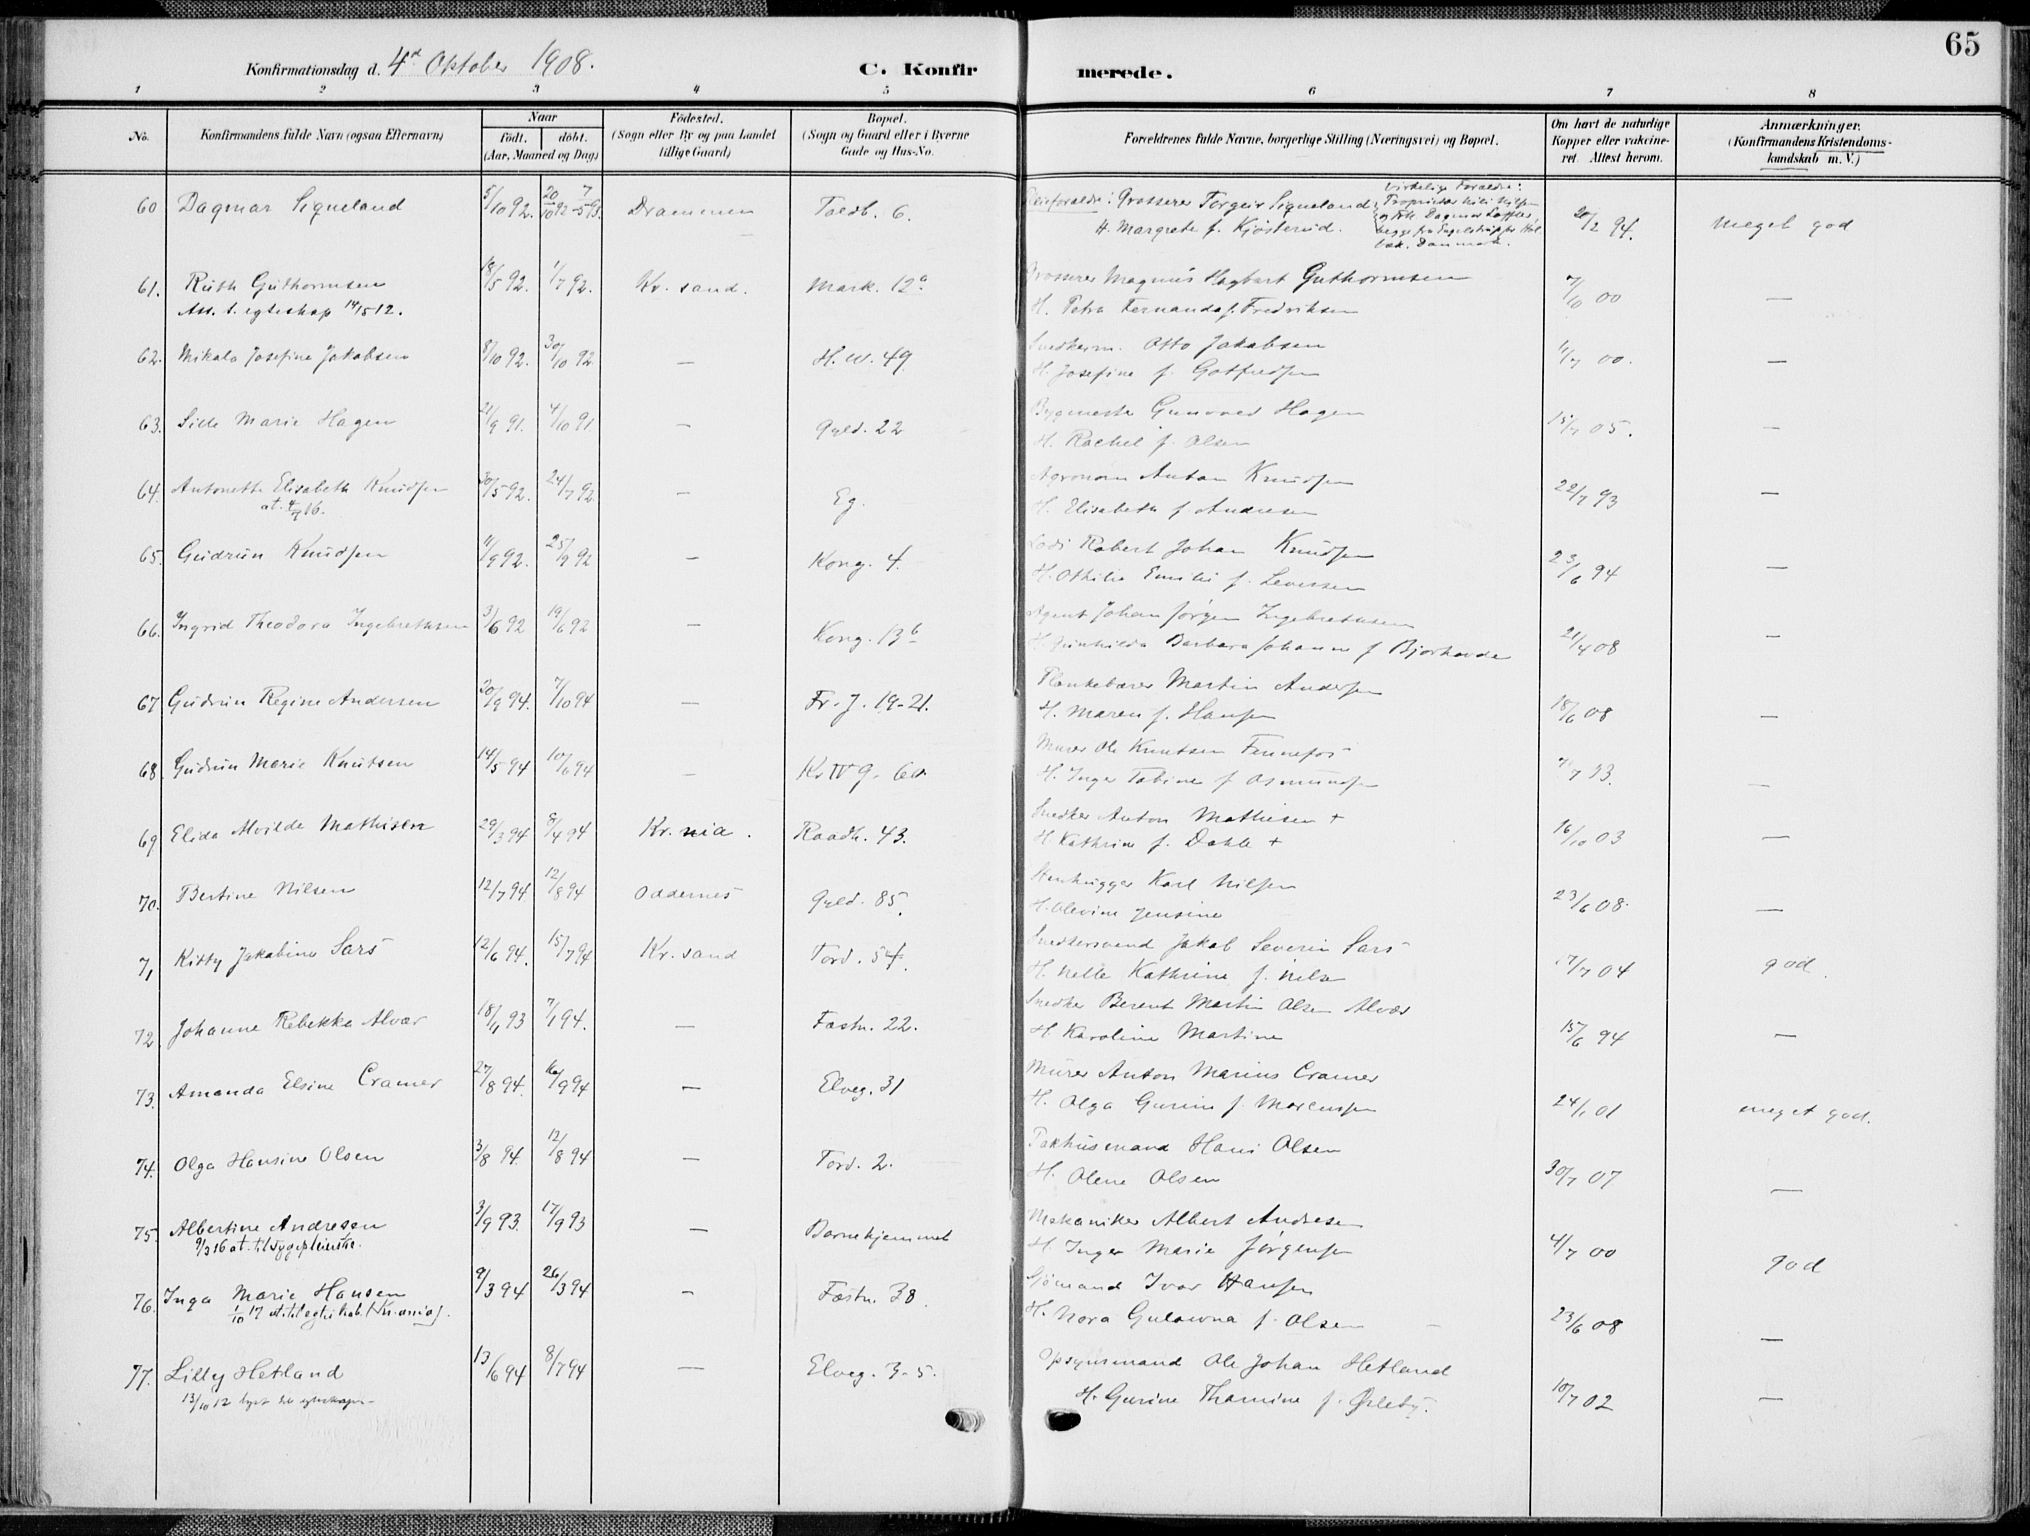 65
Konfirmationsdag d. 4d Oktober 1908. C. Konfir merede.
1 2 3 4 5 6 7 8
No. Konfirmandens fulde Navn (ogsaa Efternavn) Naar født. døbt. (Aar, Maaned og Dag) Fødested. (Sogn eller By og paa Landet tillige Gaard) Bopæl. (Sogn og Gaard eller i Byerne Gade og Hus-No. Forældrenes fulde Navne, borgerlige Stilling (Næringsvei) og Bopæl. Om havt de naturlige Kopper eller vaccineret. Attest herom. Anmærkninger. (Konfirmandens Kristendomskundskab m. V.)
60 Dagmar Siqueland 5/10 92. 20/10 92 - 7/5 93. Drammen Toldb. 6. Pleieforældre: Grosserer Torgeir Siqueland 20/2 94. Meget god
H. Margrete f. Kjøsterud.
Virkelige Forældre:
61. Ruth Guthormsen 18/5 92. 1/7 92. Kr. sand. Mark. 12a Grosserer Magnus Hagbart Guthormsen 7/10 00 —
Att. t. egteskap 14/5 12. H. Petra Fernanda f. Fredriksen
62. Mikala Josefine Jakobsen 8/10 92. 30/10 92. — H. W. 49 Snedkerm. Otto Jakobsen 11/7 00. —
H. Josefine f. Gotfredsen
63. Sille Marie Hagen 21/9 91. 4/10 91 — Gyld. 22 Bygmester Gunvald Hagen 15/7 05. —
H. Rachel f. Olsen
64. Antonette Elisabeth Knudsen 30/5 92. 24/7 92. — Eg. Agronom Anton Knudsen 22/7 93 —
at. 4/7 16. H. Elisabeth f. Andresen
65. Gudrun Knudsen 11/9 92. 25/9 92 — Kong. 4. Lods Robert Johan Knudsen 23/6 94 —
H. Othilie Emilie f. Levessen
66. Ingrid Theodora Ingebrethsen 3/6 92 19/6 92 — Kong. 13b Agent Johan Jørgen Ingebrethsen 21/4 08 —
H. Gunhilda Barbara Johanne f. Bjorhavde
67 Gudrun Regine Andersen 20/9 94. 7/10 94 — Fr. J. 19-21. Plankebærer Martin Andersen 18/6 08 —
H. Maren f. Hansen
68. Gudrun Marie Knutsen 14/5 94 10/6 94 — Kr IV g. 60. Murer Ole Knutsen Fennefos —
H. Inger Tobine f. Asmundsen
69 Elida Alvilde Mathisen 29/3 94 8/4 94 Kr.nia. Raadh. 43. Snedker Anton Mathisen + 16/10 03 —
H. Kathrine f. Dahle +
70. Bertine Nilsen 12/7 94 12/8 94 Oddernes Gyld. 85. Stenhugger Karl Nilsen 23/6 08. —
H. Olevine Jensine
71 Kitty Jakobine Sars 12/6 94. 15/7 94 Kr. sand Tord. 54. Snedkersvend Jakob Severin Sars 17/7 04 god.
H. Nelle Kathrine f. Nilsen
72 Johanne Rebekka Alvær 18/11 93 7/1 94. — Fæstn. 22. Snedker Berent Martin Olsen Alvær 15/6 94 —
H. Karoline Martine
73. Amanda Elsine Cramer 27/8 94. 16/9 94 — Elveg. 31 Murer Anton Marius Cramer 24/1 01 meget god.
H. Olga Gurine f. Marcussen
74. Olga Hansine Olsen 3/8 94. 12/8 94 — Tord. 2. Pakhusmand Hans Olsen 30/7 07 —
H. Olene Olsen
75. Albertine Andresen 3/9 93. 17/9 93 — Barnehjemmet Mekaniker Albert Andresen 4/7 00 god
9/3 16 at. til sygepleierske. H. Inger Marie Jørgensen
76. Inga Marie Hansen 9/3 94 26/3 94 — Fæstn. 38. Sjömand Ivar Hansen 23/6 08 —
1/10 17 at. til egteskab (Kr.ania). H. Nora Gulowna f. Olsen
77. Lilly Hetland 13/6 94 8/7 94 — Elveg. 3-5. Opsynsmand Ole Johan Hetland 10/7 02 —
13/10 12 lyst til egteskap H. Gurine Thomine f. Ørleby.